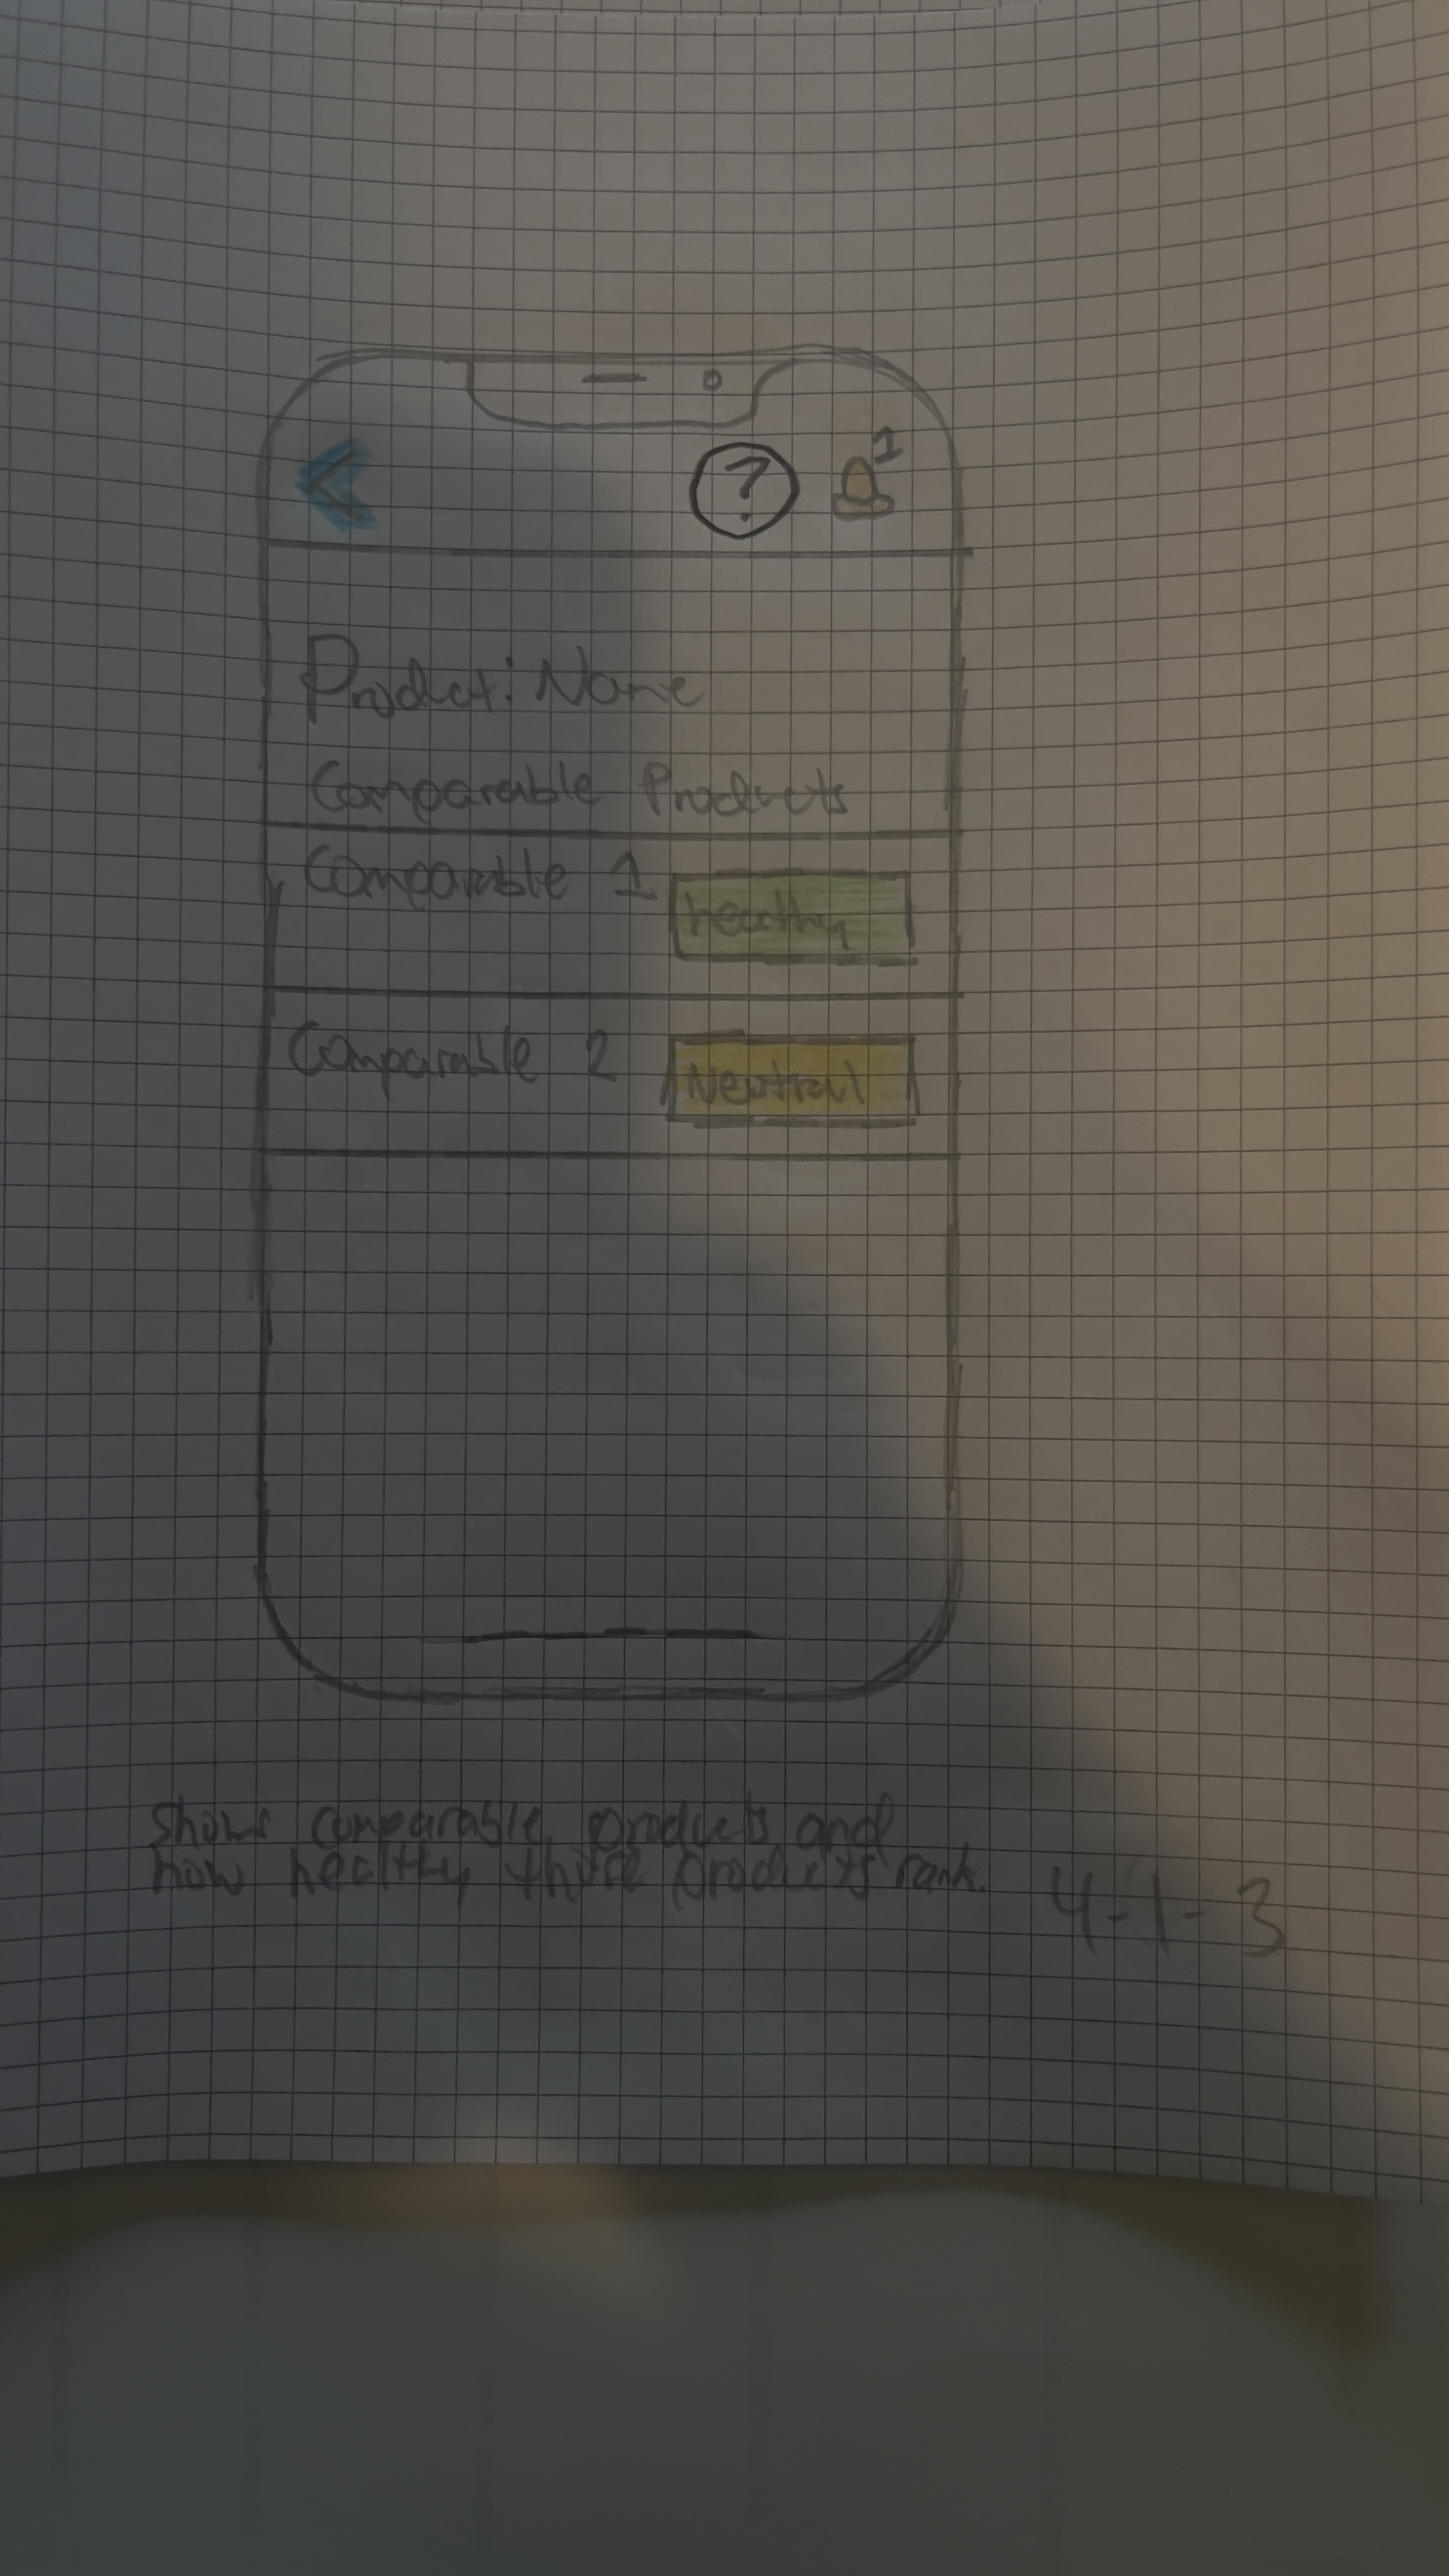 ?
1
Product: Name
Comparable Products
Comparable 1
healthy
Comparable 2
Neutral
Shows comparable products and
how healthy those products rank.
4-1-3